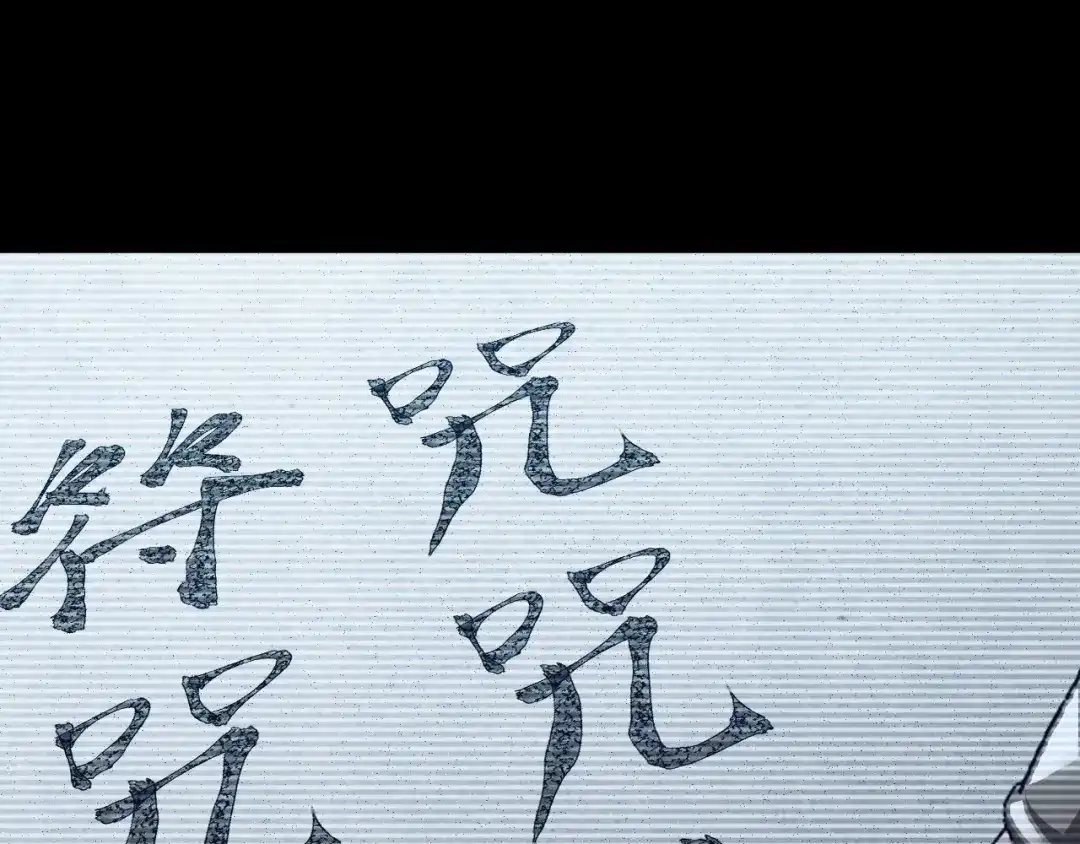 符咒
咒
咒